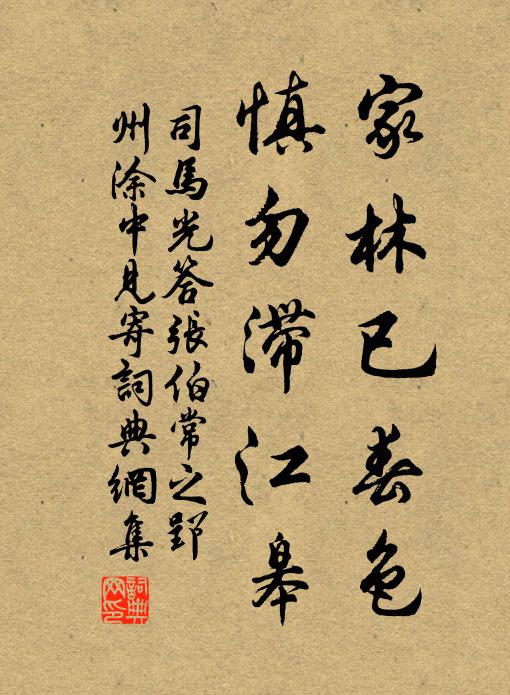 家林已春色
慎勿滞江皋
司馬光答張伯常之郢
州涂中見寄詞典網集
詞典網印